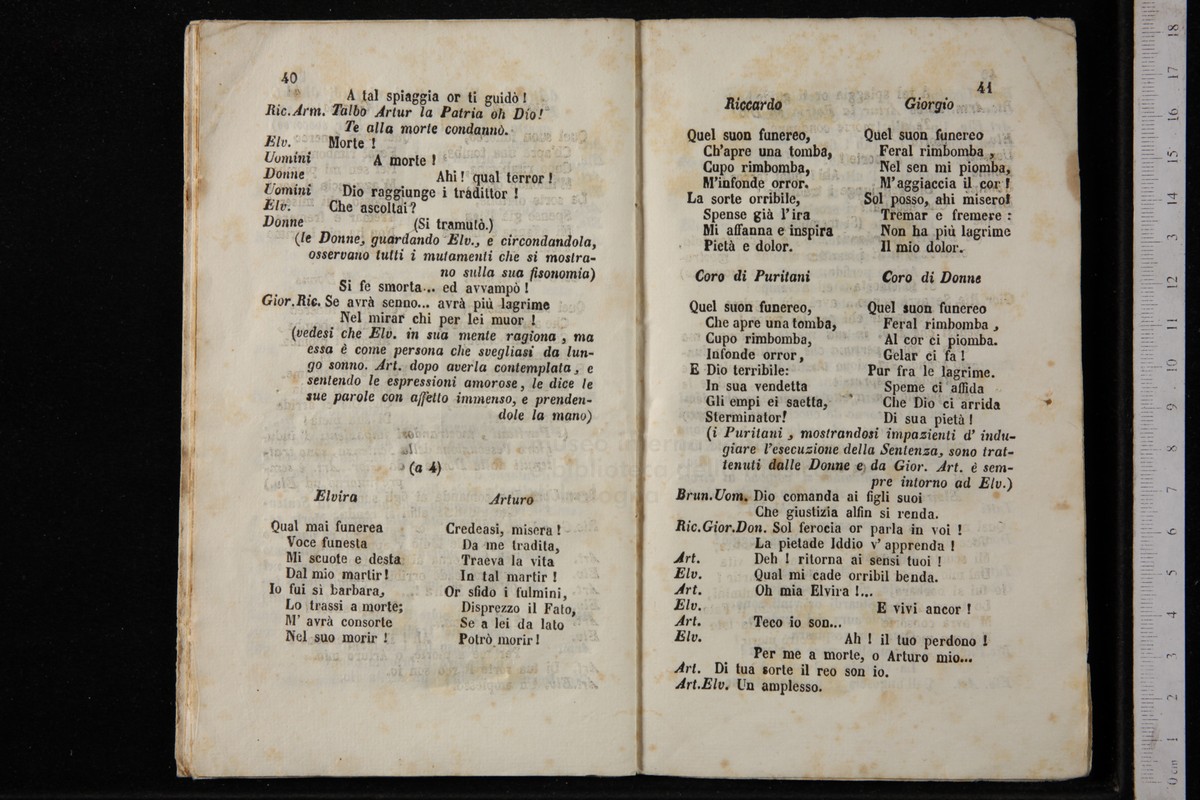 40
A tal spiaggia or ti guidò !
Ric.Arm. Talbo Artur la Patria oh Dio!
Te alla morte condannò.
Elv. Morte !
Uomini A morte !
Donne Ahi! qual terror !
Uomini Dio raggiunge i tradittor !
Elv. Che ascoltai?
Donne (Si tramutò.)
(le Donne, guardando Elv., e circondandola,
osservano tutti i mutamenti che si mostra-
no sulla sua fisonomia)
Si fe smorta... ed avvampò !
Gior.Ric. Se avrà senno... avrà più lagrime
Nel mirar chi per lei muor !
(vedesi che Elv. in sua mente ragiona , ma
essa è come persona che svegliasi da lun-
go sonno. Art. dopo averla contemplata, e
sentendo le espressioni amorose, le dice le
sue parole con affetto immenso, e prenden-
dole la mano)
(a 4)
Elvira
Qual mai funerea
Voce funesta
Mi scuote e desta
Dal mio martir!
Io fui sì barbara,
Lo trassi a morte;
M' avrà consorte
Nel suo morir !
Arturo
Credeasi, misera !
Da me tradita,
Traeva la vita
In tal martir !
Or sfido i fulmini,
Disprezzo il Fato,
Se a lei da lato
Potrò morir!
41
Riccardo
Quel suon funereo,
Ch'apre una tomba,
Cupo rimbomba,
M'infonde orror.
La sorte orribile,
Spense già l'ira
Mi affanna e inspira
Pietà e dolor.
Giorgio
Quel suon funereo
Feral rimbomba ,
Nel sen mi piomba,
M'aggiaccia il cor !
Sol posso, ahi misero!
Tremar e fremere :
Non ha più lagrime
Il mio dolor.
Coro di Puritani
Quel suon funereo,
Che apre una tomba,
Cupo rimbomba,
Infonde orror,
E Dio terribile:
In sua vendetta
Gli empi ei saetta,
Sterminator!
Coro di Donne
Quel suon funereo
Feral rimbomba ,
Al cor ci piomba.
Gelar ci fa !
Pur fra le lagrime.
Speme ci affida
Che Dio ci arrida
Di sua pietà !
(i Puritani , mostrandosi impazienti d' indu-
giare l'esecuzione della Sentenza, sono trat-
tenuti dalle Donne e da Gior. Art. è sem-
pre intorno ad Elv.)
Brun.Uom. Dio comanda ai figli suoi
Che giustizia alfin si renda.
Ric.Gior.Don. Sol ferocia or parla in voi !
La pietade Iddio v' apprenda !
Art. Deh ! ritorna ai sensi tuoi !
Elv. Qual mi cade orribil benda.
Art. Oh mia Elvira !...
Elv. E vivi ancor !
Art. Teco io son...
Elv. Ah ! il tuo perdono !
Per me a morte, o Arturo mio...
Art. Di tua sorte il reo son io.
Art.Elv. Un amplesso.
0 cm 1 2 3 4 5 6 7 8 9 10 11 12 13 14 15 16 17 18